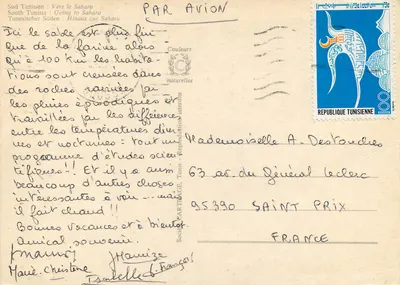 Sud Tunisien : Vers le Sahara
South Tunisia : Going to Sahara
PAR AVION
Couleurs
naturelles
REPUBLIQUE TUNISIENNE
100
Ici le sable est plus fin
que de la farine alors
qu'à 100 km les habita-
tions sont creusées dans
des roches ravinées par
les pluies épisodiques et
travaillées par les différences
entre les températures diur-
nes et nocturnes : tout un
programme d'études scien-
tifiques ! Et il y a aussi
beaucoup d'autres choses
intéressantes à voir... mais
il fait chaud !!
Bonnes vacances et à bientôt.
Amical souvenir.
Marie-Christine
François
Mademoiselle A. Destouches
63 av. du Général Leclerc
95390 SAINT PRIX
FRANCE